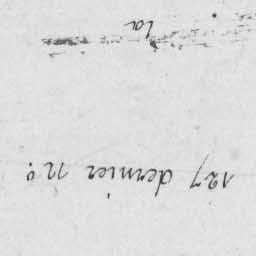 127 dernier nº.
la